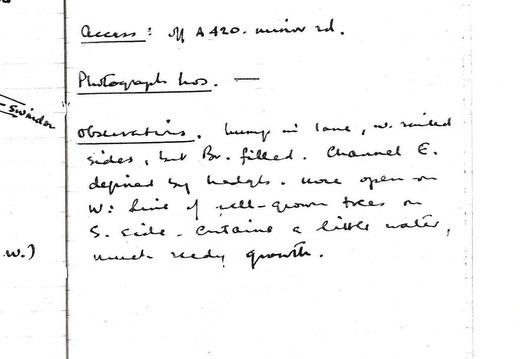 Access: off A420. minor rd.
Photograph Nos. —
Swindon
Observations. hump in lane, w. railed
sides, but Br. filled. Channel E.
defined by hedges. more open on
W: line of well-grown trees on
S. side. Contains a little water,
W.)
much reedy growth.